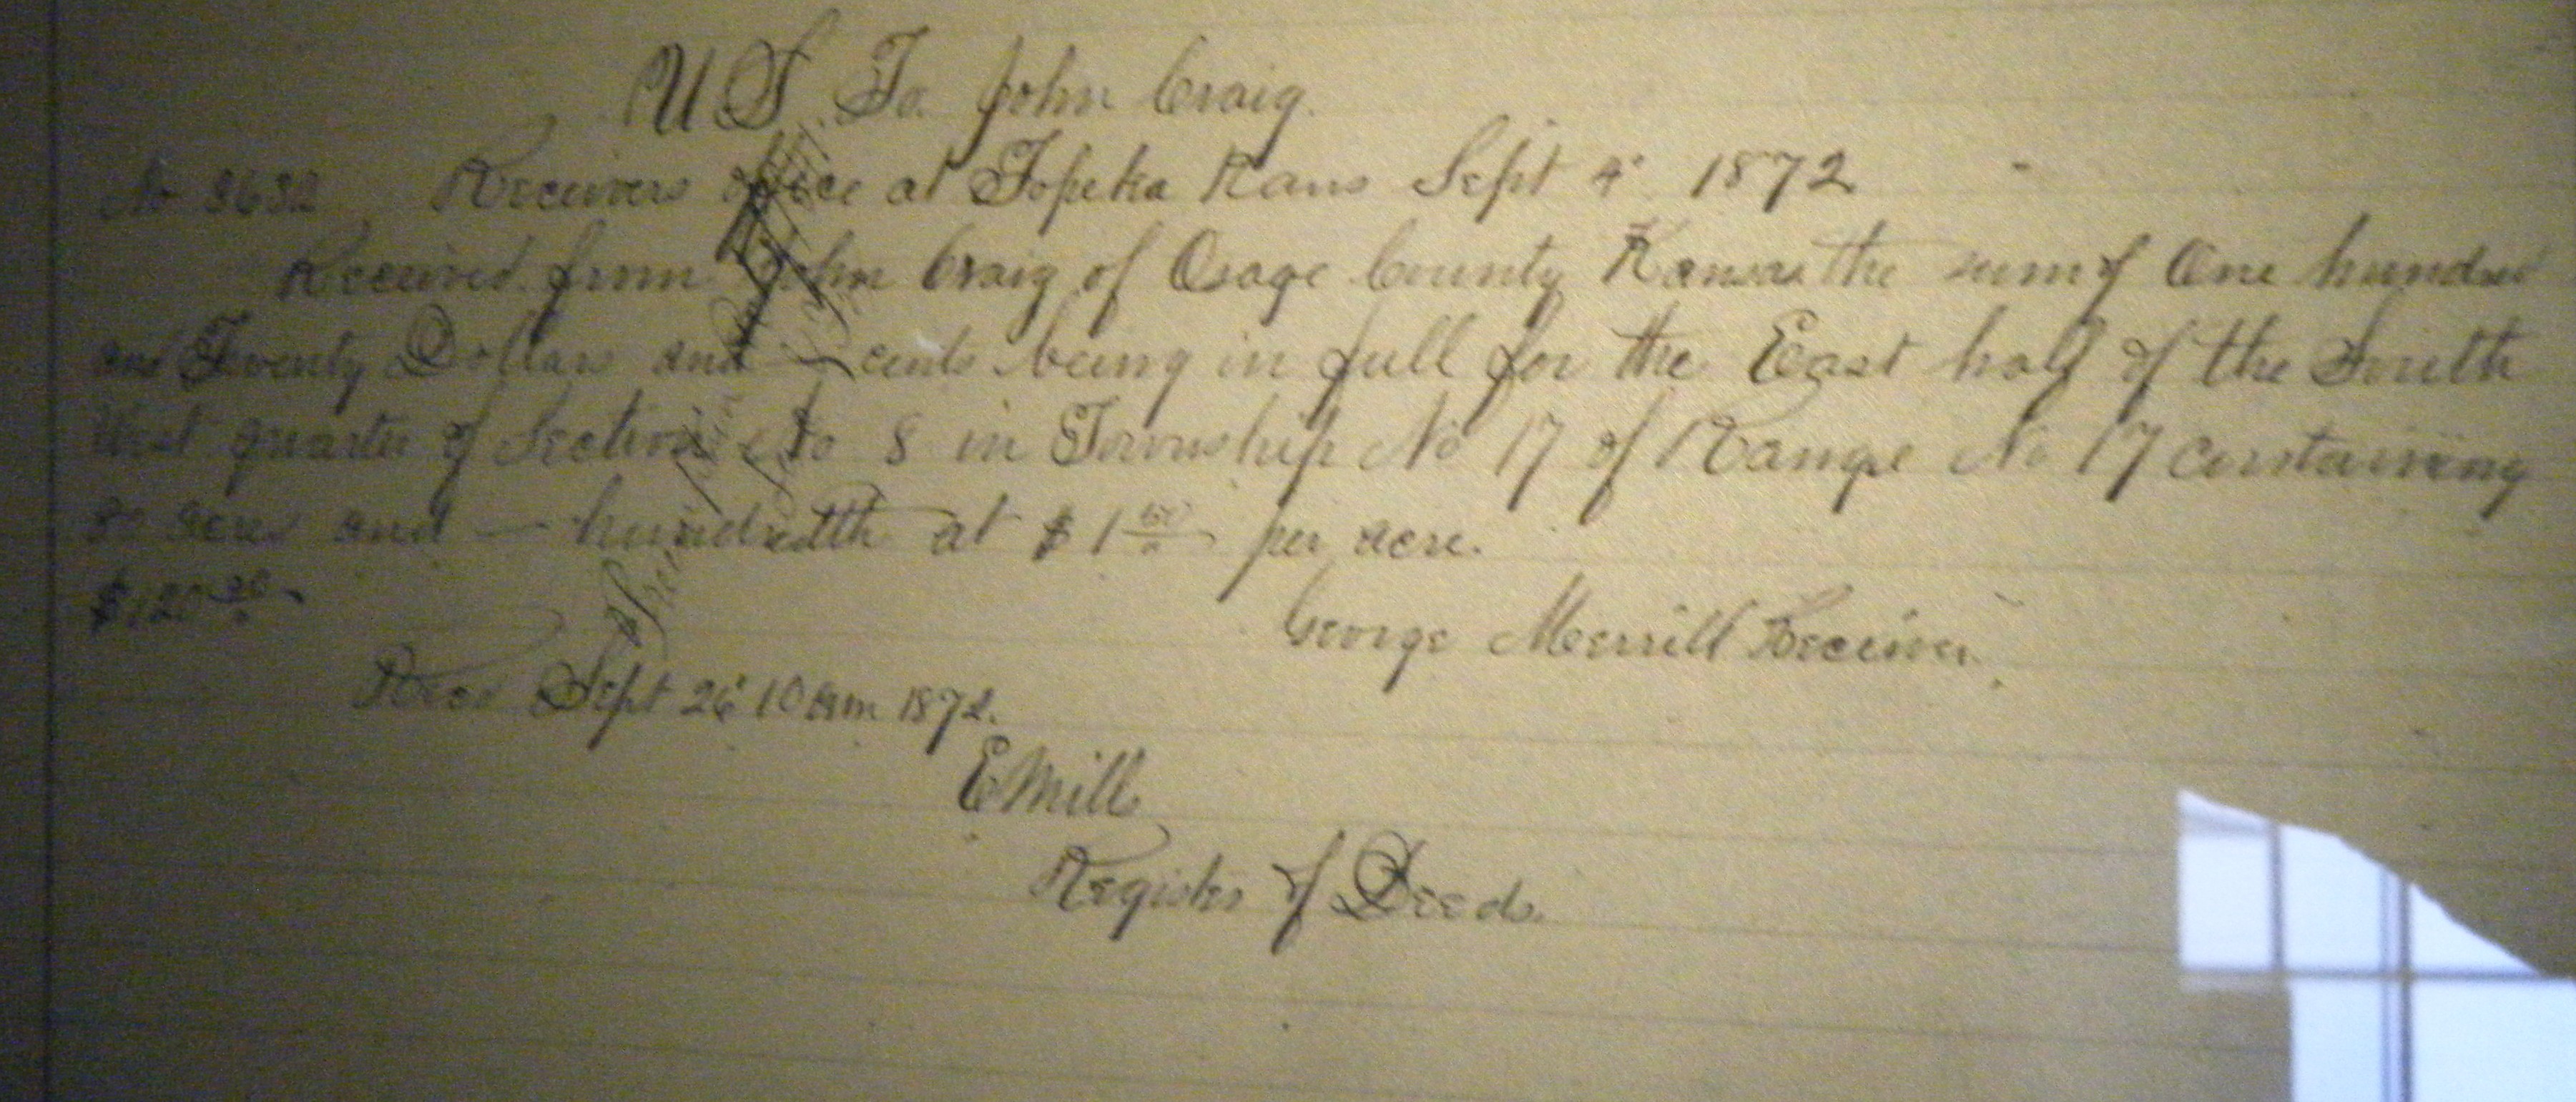 U S To John Craig.
No 3632 Receivers office at Topeka Kans Sept 4" 1872
Received from John Craig of Osage County Kansas the sum of One hundred
and Twenty Dollars and — cents being in full for the East half of the South
West quarter of Section No 8 in Township No 17 of Range No 17 containing
80 acres and — hundredth at $ 1 50/ per acre.
$120
George Merrill Receiver.
Sept 26" 10 am 1872.
E Mills
Register of Deeds.